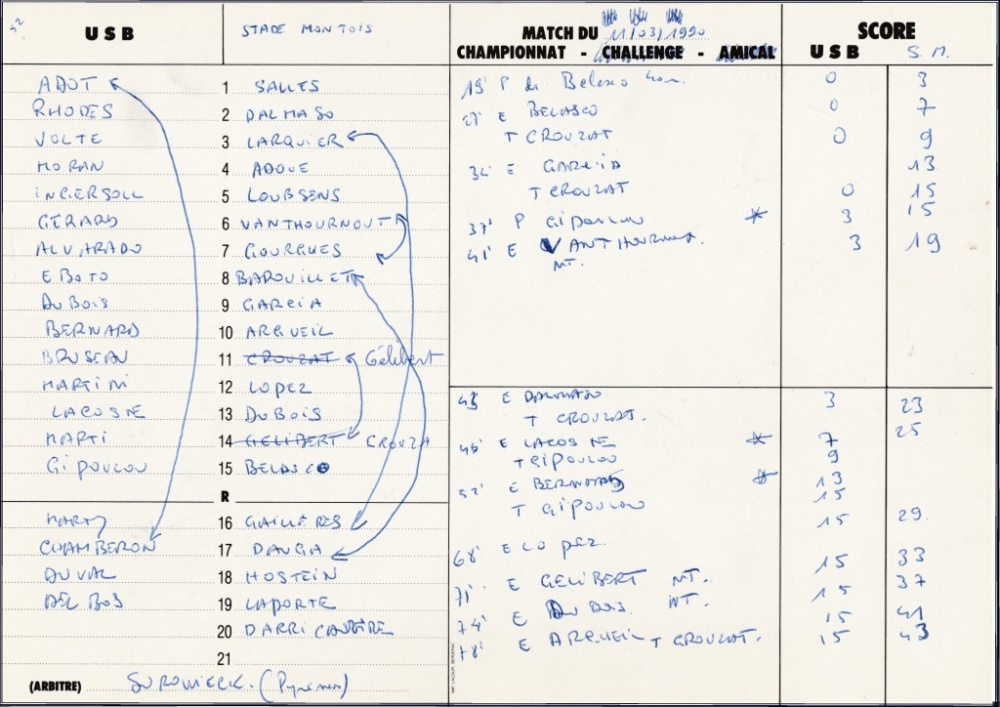 USB STADE MONTOIS MATCH DU 11/03/1990 SCORE
CHAMPIONNAT - CHALLENGE - AMICAL USB S.M.
ADOT 1 SALLES
RHODES 2 DALMASO
VOLTE 3 LARQUIER
MORAN 4 ADOUE
INGERSOLL 5 LOUBSENS
GERARD 6 VANTHOURNOUT
ALVARADO 7 GOURGUES
EBOTO 8 BAROUILLET
DUBOIS 9 GARCIA
BERNARD 10 ARGUEIL
BRUSEAU 11 CROUZAT Gélibert
MARTINI 12 LOPEZ
LACOSTE 13 DUBOIS
MARTI 14 GELIBERT CROUZA
GIPOULOU 15 BELASCO
R
MARTY 16 GAILLERES
CHAMBERON 17 DAUGA
DUVAL 18 HOSTEIN
DELBOS 19 LAPORTE
20 DARRICARRERE
21
(ARBITRE) SUROWIECK. (Pyrénées)
15' P de Belasco 0 3
27' E BELASCO 0 7
T CROUZAT 0 9
34' E GARCIA 13
T CROUZAT 0 15
37' P GIPOULOU * 3 15
41' E VANTHOURNOUT. 3 19
NT.
43 E DALMASO 3 23
T CROUZAT. 25
46' E LACOSTE * 7
T GIPOULOU 9
52' E BERNARD * 13
T GIPOULOU 15
15 29.
68' E LOPEZ. 15 33
71' E GELIBERT NT. 15 37
74' E DUBOIS. NT. 15 41
78' E ARGUEIL T CROUZAT. 15 43